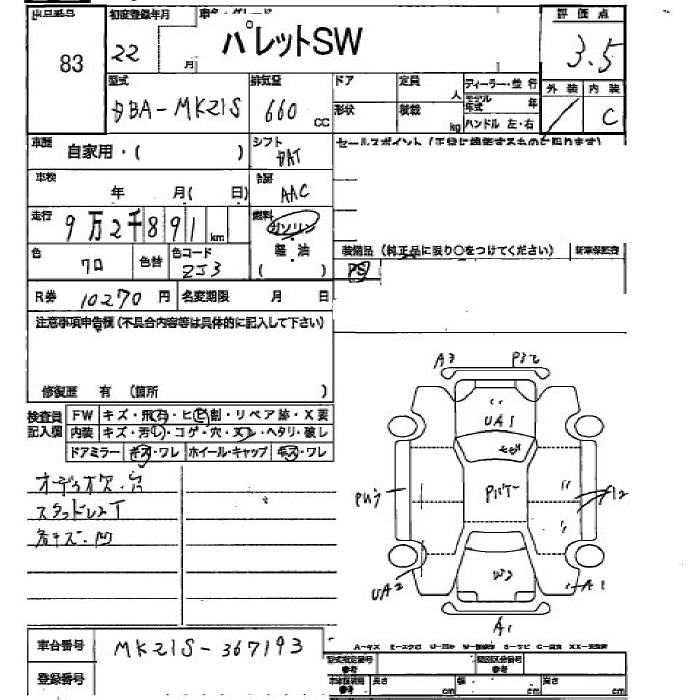 出品番号 初度登録年月 車名・グレード 評価点
83 22 月 パレットSW 3.5
型式 排気量 ドア 定員 人 ディーラー・並行 外装 内装
DBA-MK21S 660 cc 形状 積載 kg モデル年式 年 C
ハンドル 左・右
車歴 自家用・( ) シフト DAT セールスポイント(正常に機能するものに限ります)
車検 年 月( 日) 冷房 AAC
走行 9万2千891 km 燃料 ガソリン
色 クロ 色替 色コード ZJ3 軽油 ( ) 装備品(純正品に限り○をつけてください) 新車保証書
PS
R券 10270円 名変期限 月 日
注意事項申告欄(不具合内容等は具体的に記入して下さい)
修復歴 有(箇所 )
検査員記入欄 FW キズ・飛石・ヒビ割・リペア跡・X要
内装 キズ・汚レ・コゲ・穴・ヌレ・ヘタリ・破レ
ドアミラー キズ・ワレ ホイール・キャップ キズ・ワレ
オーディオ欠・穴
スタッドレスT
A3
UA1
UA2
A1
A1
車台番号 MK21S-367193
登録番号
型式指定番号 参考 類別区分番号 参考
長さ cm 幅 cm 高さ cm